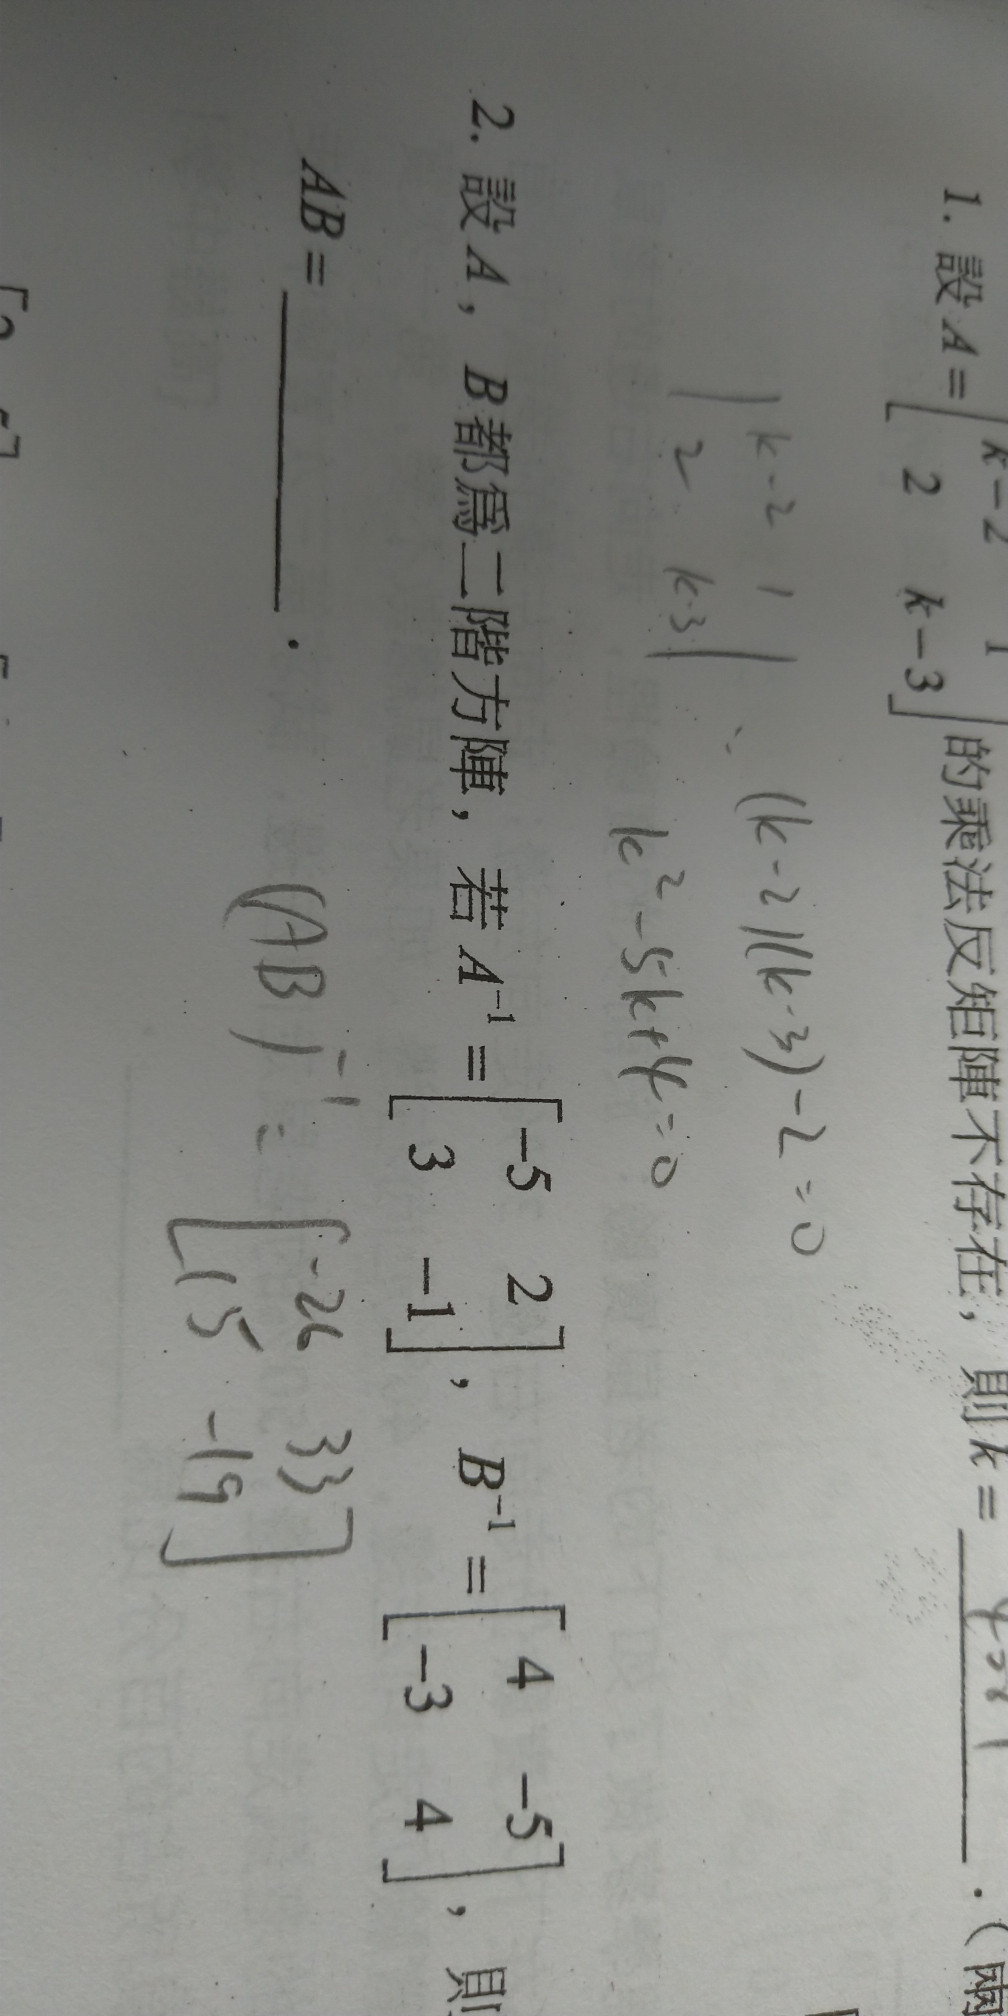 1. 設 A = [ k-2 1
2 k-3 ] 的乘法反矩陣不存在，則 k = 4或1 .（兩
| k-2 1
2 k-3 |
(k-2)(k-3)-2=0
k²-5k+4=0
2. 設 A，B 都為二階方陣，若 A⁻¹ = [ -5 2
3 -1 ]，B⁻¹ = [ 4 -5
-3 4 ]，則
AB = ________ .
(AB)⁻¹ = [ -26 33
15 -19 ]